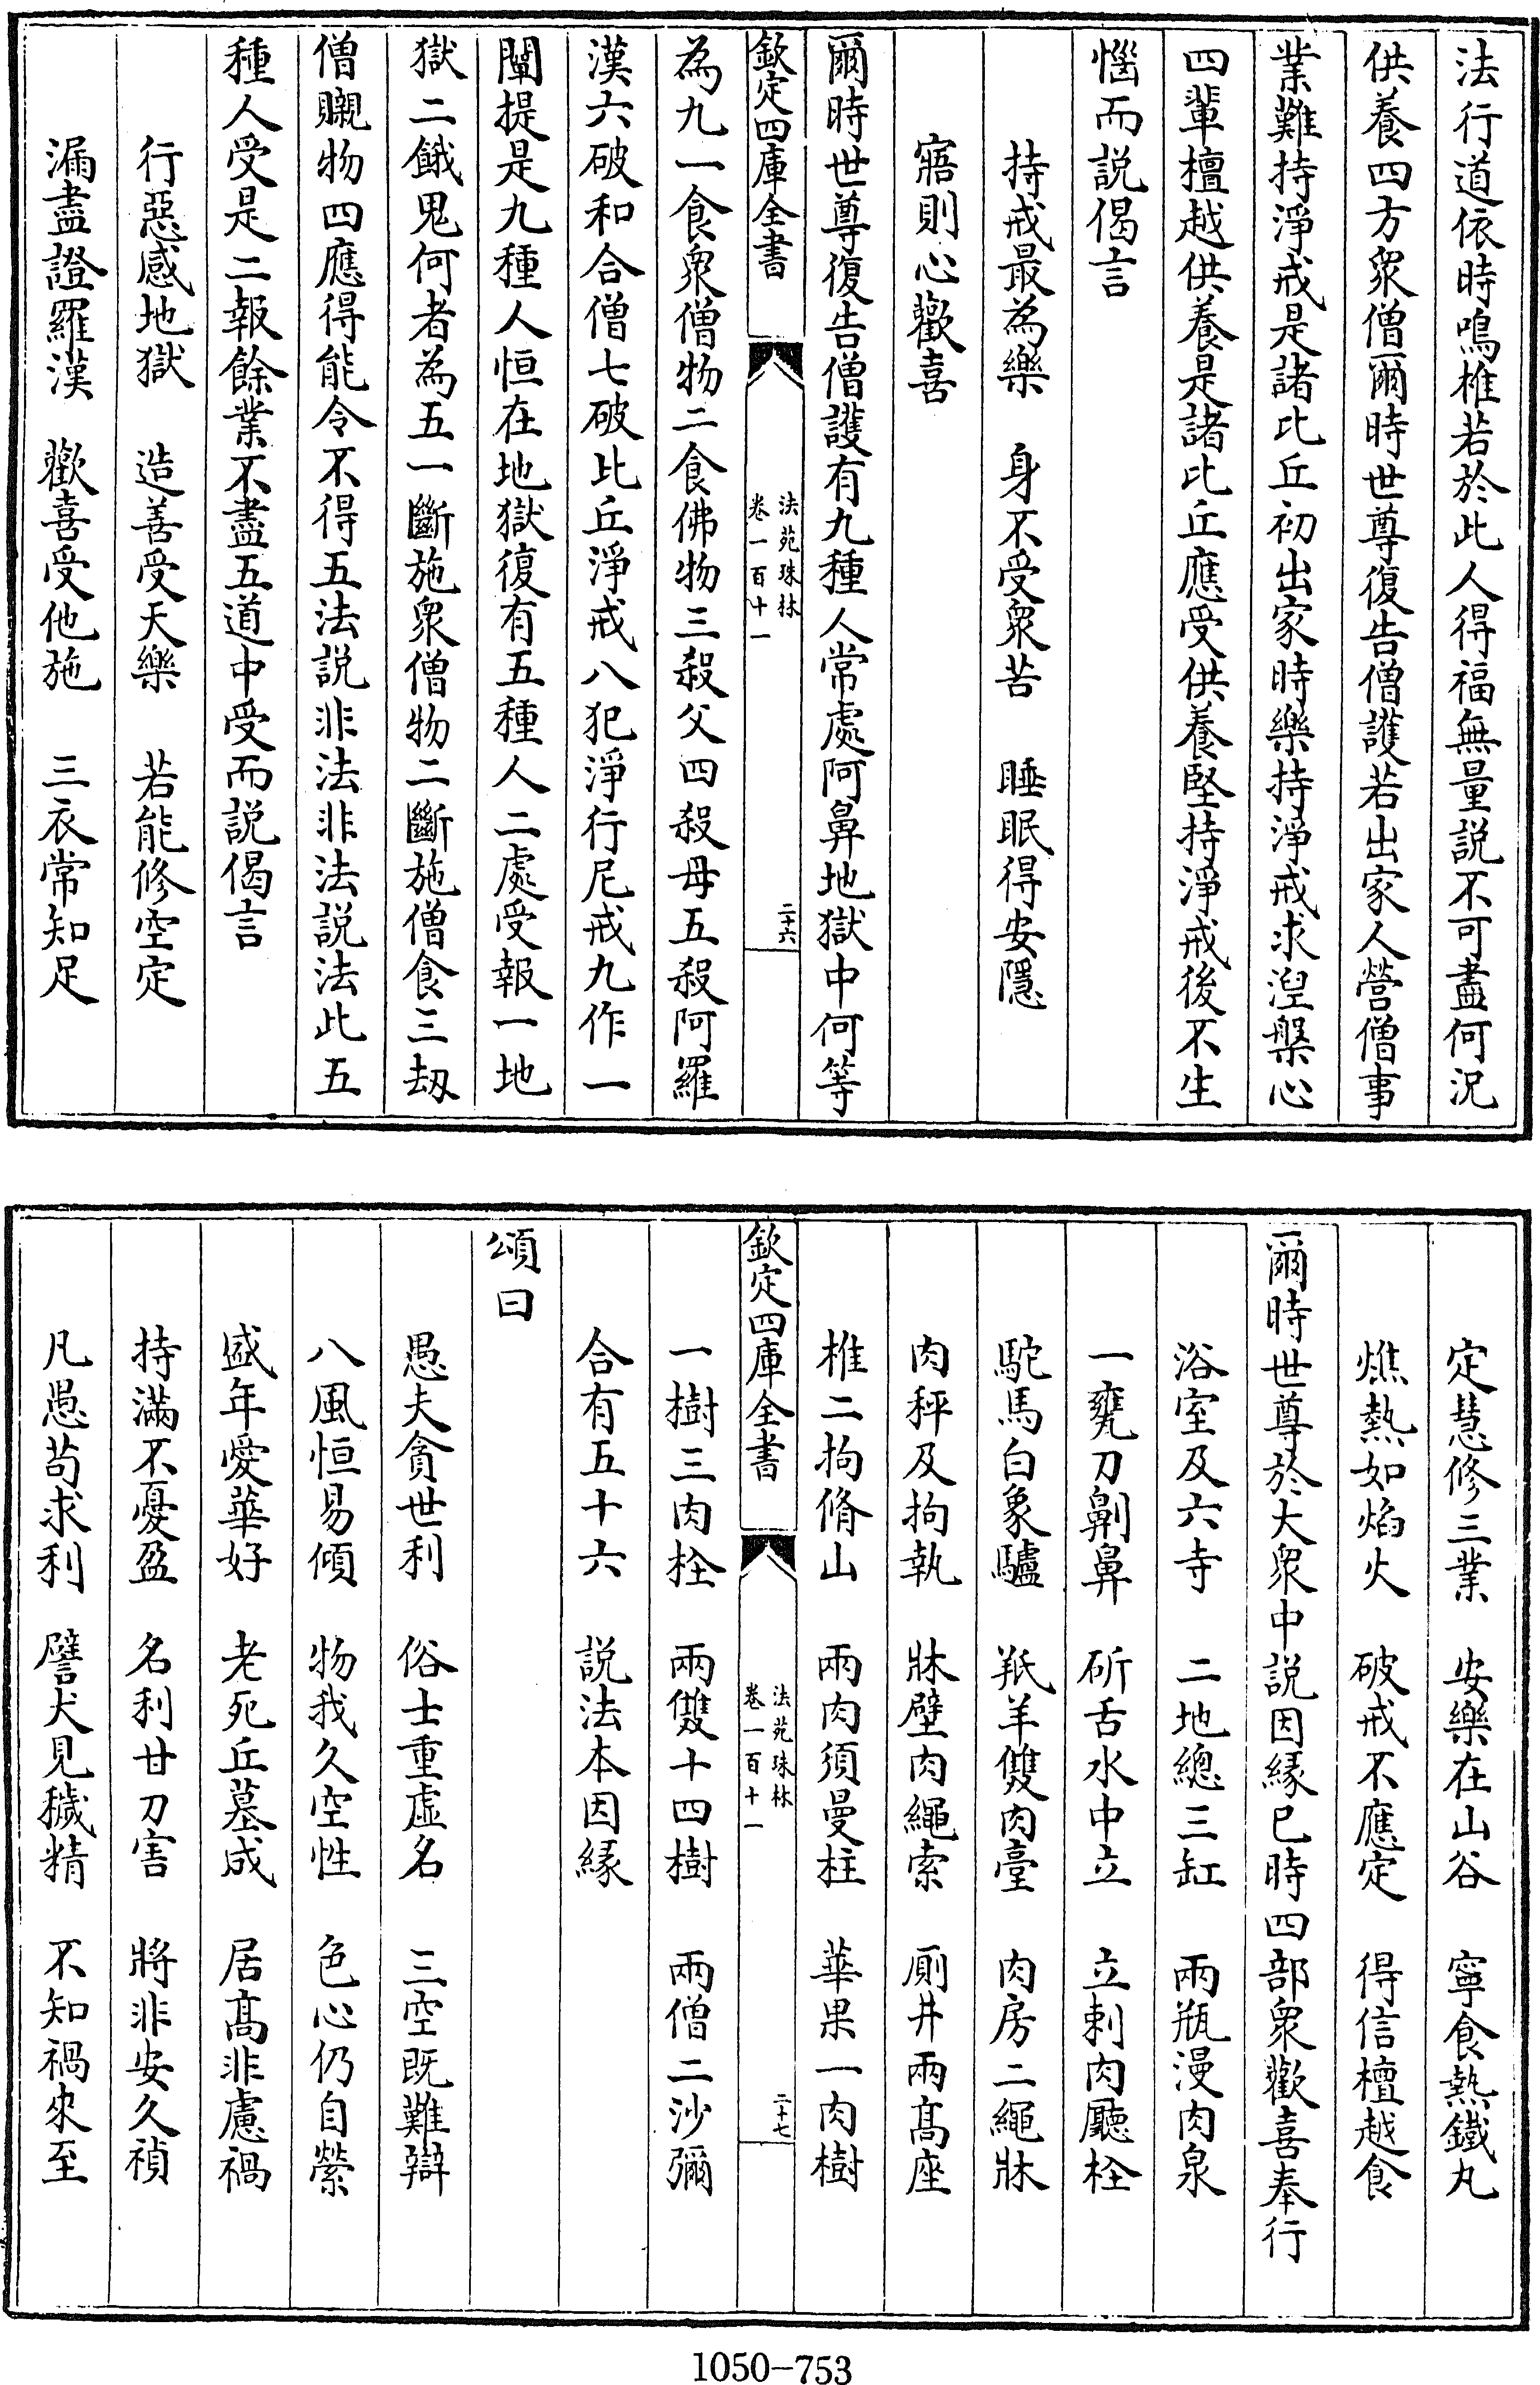 法行道依時鳴椎若於此人得福無量説不可盡何況
供養四方衆僧爾時世尊復告僧護若出家人營僧事
業難持淨戒是諸比丘初出家時樂持淨戒求涅槃心
四輩檀越供養是諸比丘應受供養堅持淨戒後不生
惱而説偈言
持戒最為樂　身不受衆苦　睡眠得安隱
寤則心歡喜
爾時世尊復告僧護有九種人常處阿鼻地獄中何等
欽定四庫全書
法苑珠林
卷一百十一
二十六
為九一食衆僧物二食佛物三殺父四殺母五殺阿羅
漢六破和合僧七破比丘淨戒八犯淨行尼戒九作一
闡提是九種人恒在地獄復有五種人二處受報一地
獄二餓鬼何者為五一斷施衆僧物二斷施僧食三刼
僧䞋物四應得能令不得五法説非法非法説法此五
種人受是二報餘業不盡五道中受而説偈言
行惡感地獄　造善受天樂　若能修空定
漏盡證羅漢　歡喜受他施　三衣常知足
定慧修三業　安樂在山谷　寧食熱鐵丸
燋熱如焰火　破戒不應定　得信檀越食
爾時世尊於大衆中説因縁已時四部衆歡喜奉行
浴室及六寺　二地總三缸　兩瓶漫肉泉
一甕刀劓鼻　斫舌水中立　立剌肉廳栓
駝馬白象驢　羝羊雙肉臺　肉房二繩牀
肉秤及拘執　牀壁肉繩索　厠井兩髙座
椎二拘脩山　兩肉須曼柱　華果一肉樹
欽定四庫全書
法苑珠林
卷一百十一
二十七
一樹三肉栓　兩雙十四樹　兩僧二沙彌
合有五十六　説法本因縁
頌曰
愚夫貪世利　俗士重虛名　三空既難辯
八風恒易傾　物我久空性　色心仍自縈
盛年愛華好　老死丘墓成　居髙非慮禍
持滿不憂盈　名利甘刀害　將非安久禎
凡愚苟求利　譬犬見穢精　不知禍來至
1050-753